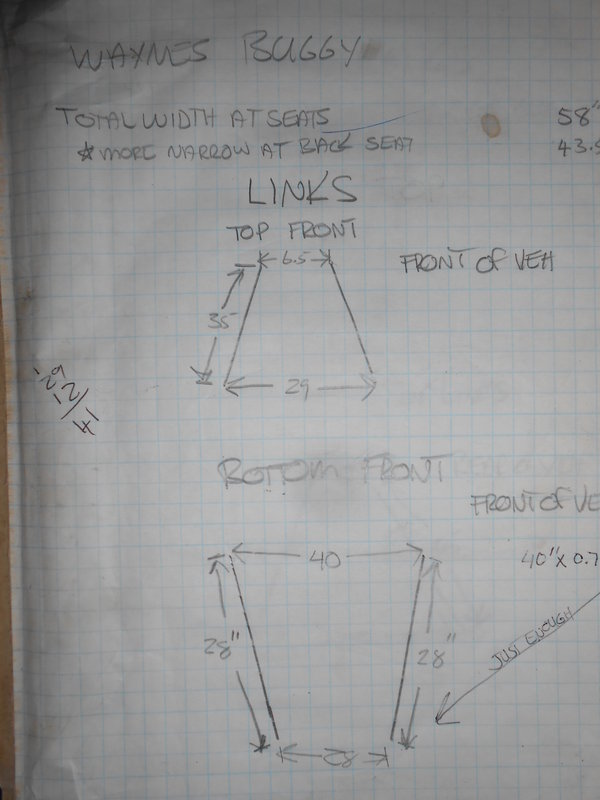 WAYNES BUGGY
TOTAL WIDTH AT SEATS 58"
*MORE NARROW AT BACK SEAT 43.5
LINKS
TOP FRONT
6.5 FRONT OF VEH
35
29
29
12/
41
BOTTOM FRONT
FRONT OF VE
40 40" X 0.7
28" 28"
JUST ENOUGH
28